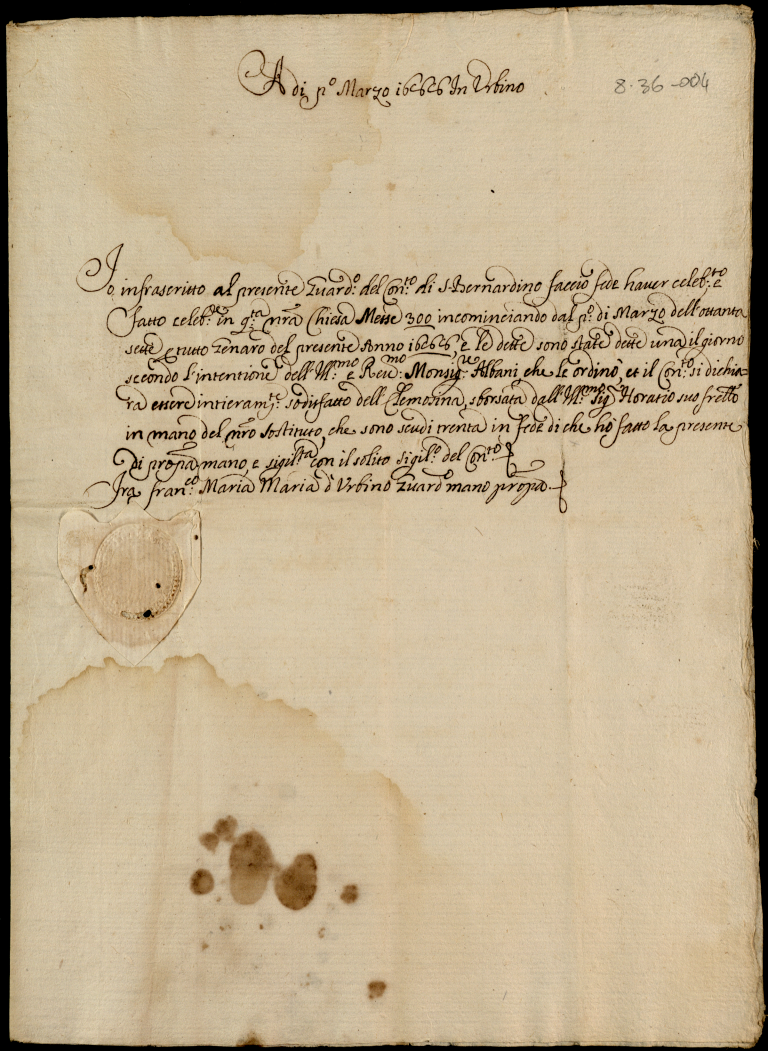 A di p.º Marzo 1688 In Urbino
8·36-004
Io infrascritto al presente Guard.º del Con.to di S. Bernardino faccio fede haver celeb.to e
fatto celeb.re in q.ta n̄ra Chiesa Messe 300 incominciando dal p.º di Marzo dell'ottanta
sette e tutto Genaro del presente Anno 1688, e le dette sono state dette una il giorno
secondo l'intentione dell'Ill.mo e Rev.mo Monsig.re Albani che le ordinò, et il Con.to si dichia-
ra essere intieram.te sodisfatto dell'Elemosina, sborsata dall'Ill.mo Sig.r Horatio suo fretto
in mano del n̄ro Sostituto, che sono scudi trenta in fede di che hò fatto la presente
Di propa mano, e sigil.ta con il solito sigil.º del Con.to
Fra Fran.co Maria Maria d'Urbino Guard.º mano propa.